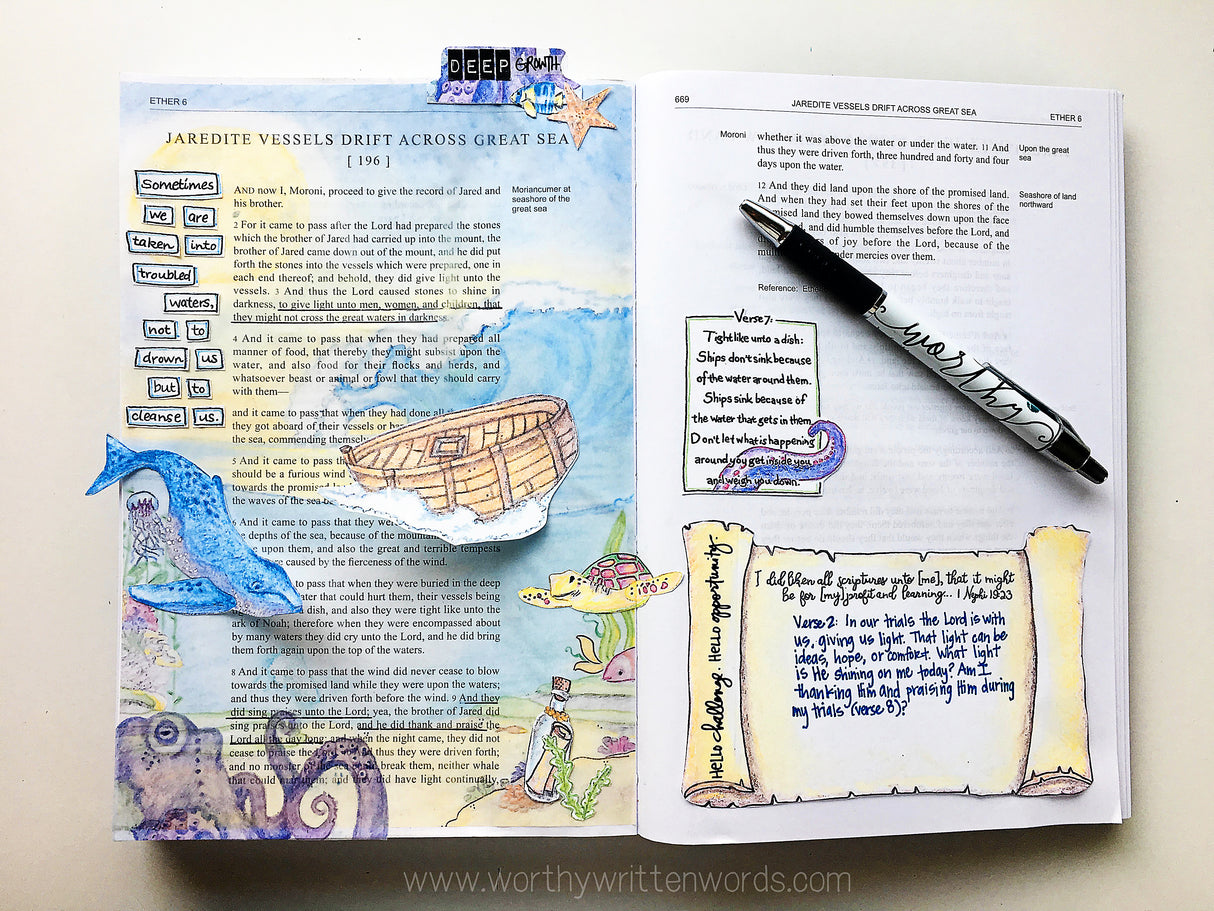 DEEP GROWTH
ETHER 6
JAREDITE VESSELS DRIFT ACROSS GREAT SEA
[ 196 ]
Sometimes
we are
taken into
troubled
waters,
not to
drown us
but to
cleanse us.
AND now I, Moroni, proceed to give the record of Jared and
his brother.
Moriancumer at
seashore of the
great sea
2 For it came to pass after the Lord had prepared the stones
which the brother of Jared had carried up into the mount, the
brother of Jared came down out of the mount, and he did put
forth the stones into the vessels which were prepared, one in
each end thereof; and behold, they did give light unto the
vessels. 3 And thus the Lord caused stones to shine in
darkness, to give light unto men, women, and children, that
they might not cross the great waters in darkness.
4 And it came to pass that when they had prepared all
manner of food, that thereby they might subsist upon the
water, and also food for their flocks and herds, and
whatsoever beast or animal or fowl that they should carry
with them—
and it came to pass that when they had done all
they got aboard of their vessels or
the sea, commending
5 And it came to pass
should be a furious wind
towards the promised
the waves of the sea
6 And it came to pass that they
depths of the sea, because of the
upon them, and also the great and terrible tempests
caused by the fierceness of the wind.
to pass that when they were buried in the deep
that could hurt them, their vessels being
dish, and also they were tight like unto the
ark of Noah; therefore when they were encompassed about
by many waters they did cry unto the Lord, and he did bring
them forth again upon the top of the waters.
8 And it came to pass that the wind did never cease to blow
towards the promised land while they were upon the waters;
and thus they were driven forth before the wind. 9 And they
did sing praises unto the Lord; yea, the brother of Jared did
sing praises unto the Lord, and he did thank and praise the
Lord all the day long; and when the night came, they did not
cease to praise the Lord. 10 And thus they were driven forth;
and no monster of the sea could break them, neither whale
that could mar them; and they did have light continually,
669
JAREDITE VESSELS DRIFT ACROSS GREAT SEA
ETHER 6
Moroni
whether it was above the water or under the water. 11 And
thus they were driven forth, three hundred and forty and four
days upon the water.
Upon the great
sea
12 And they did land upon the shore of the promised land.
And when they had set their feet upon the shores of the
promised land they bowed themselves down upon the face
and did humble themselves before the Lord, and
of joy before the Lord, because of the
mercies over them.
Seashore of land
northward
Reference:
worthy
Verse 7:
Tight like unto a dish:
Ships don't sink because
of the water around them.
Ships sink because of
the water that gets in them.
Don't let what is happening
around you get inside you
and weigh you down.
Hello challenge. Hello opportunity.
I did liken all scriptures unto [me], that it might
be for [my] profit and learning... 1 Nephi 19:23
Verse 2: In our trials the Lord is with
us, giving us light. That light can be
ideas, hope, or comfort. What light
is He shining on me today? Am I
thanking Him and praising Him during
my trials (verse 8)?
www.worthywrittenwords.com